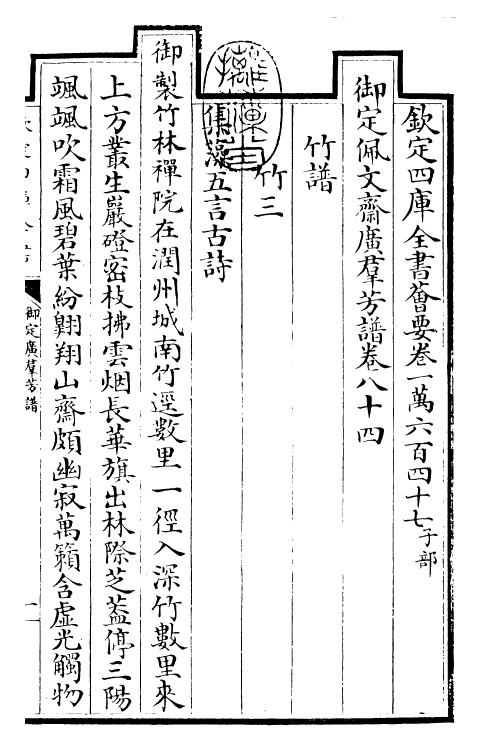 欽定四庫全書薈要卷一萬六百四十七子部
御定佩文齋廣羣芳譜卷八十四
竹譜
竹三
集藻五言古詩
御製竹林禪院在潤州城南竹逕數里一徑入深竹數里來
上方叢生巖磴密枝拂雲烟長華旗出林際芝蓋停三陽
颯颯吹霜風碧葉紛翺翔山齋頗幽寂萬籟含虛光觸物
御定廣羣芳譜
一